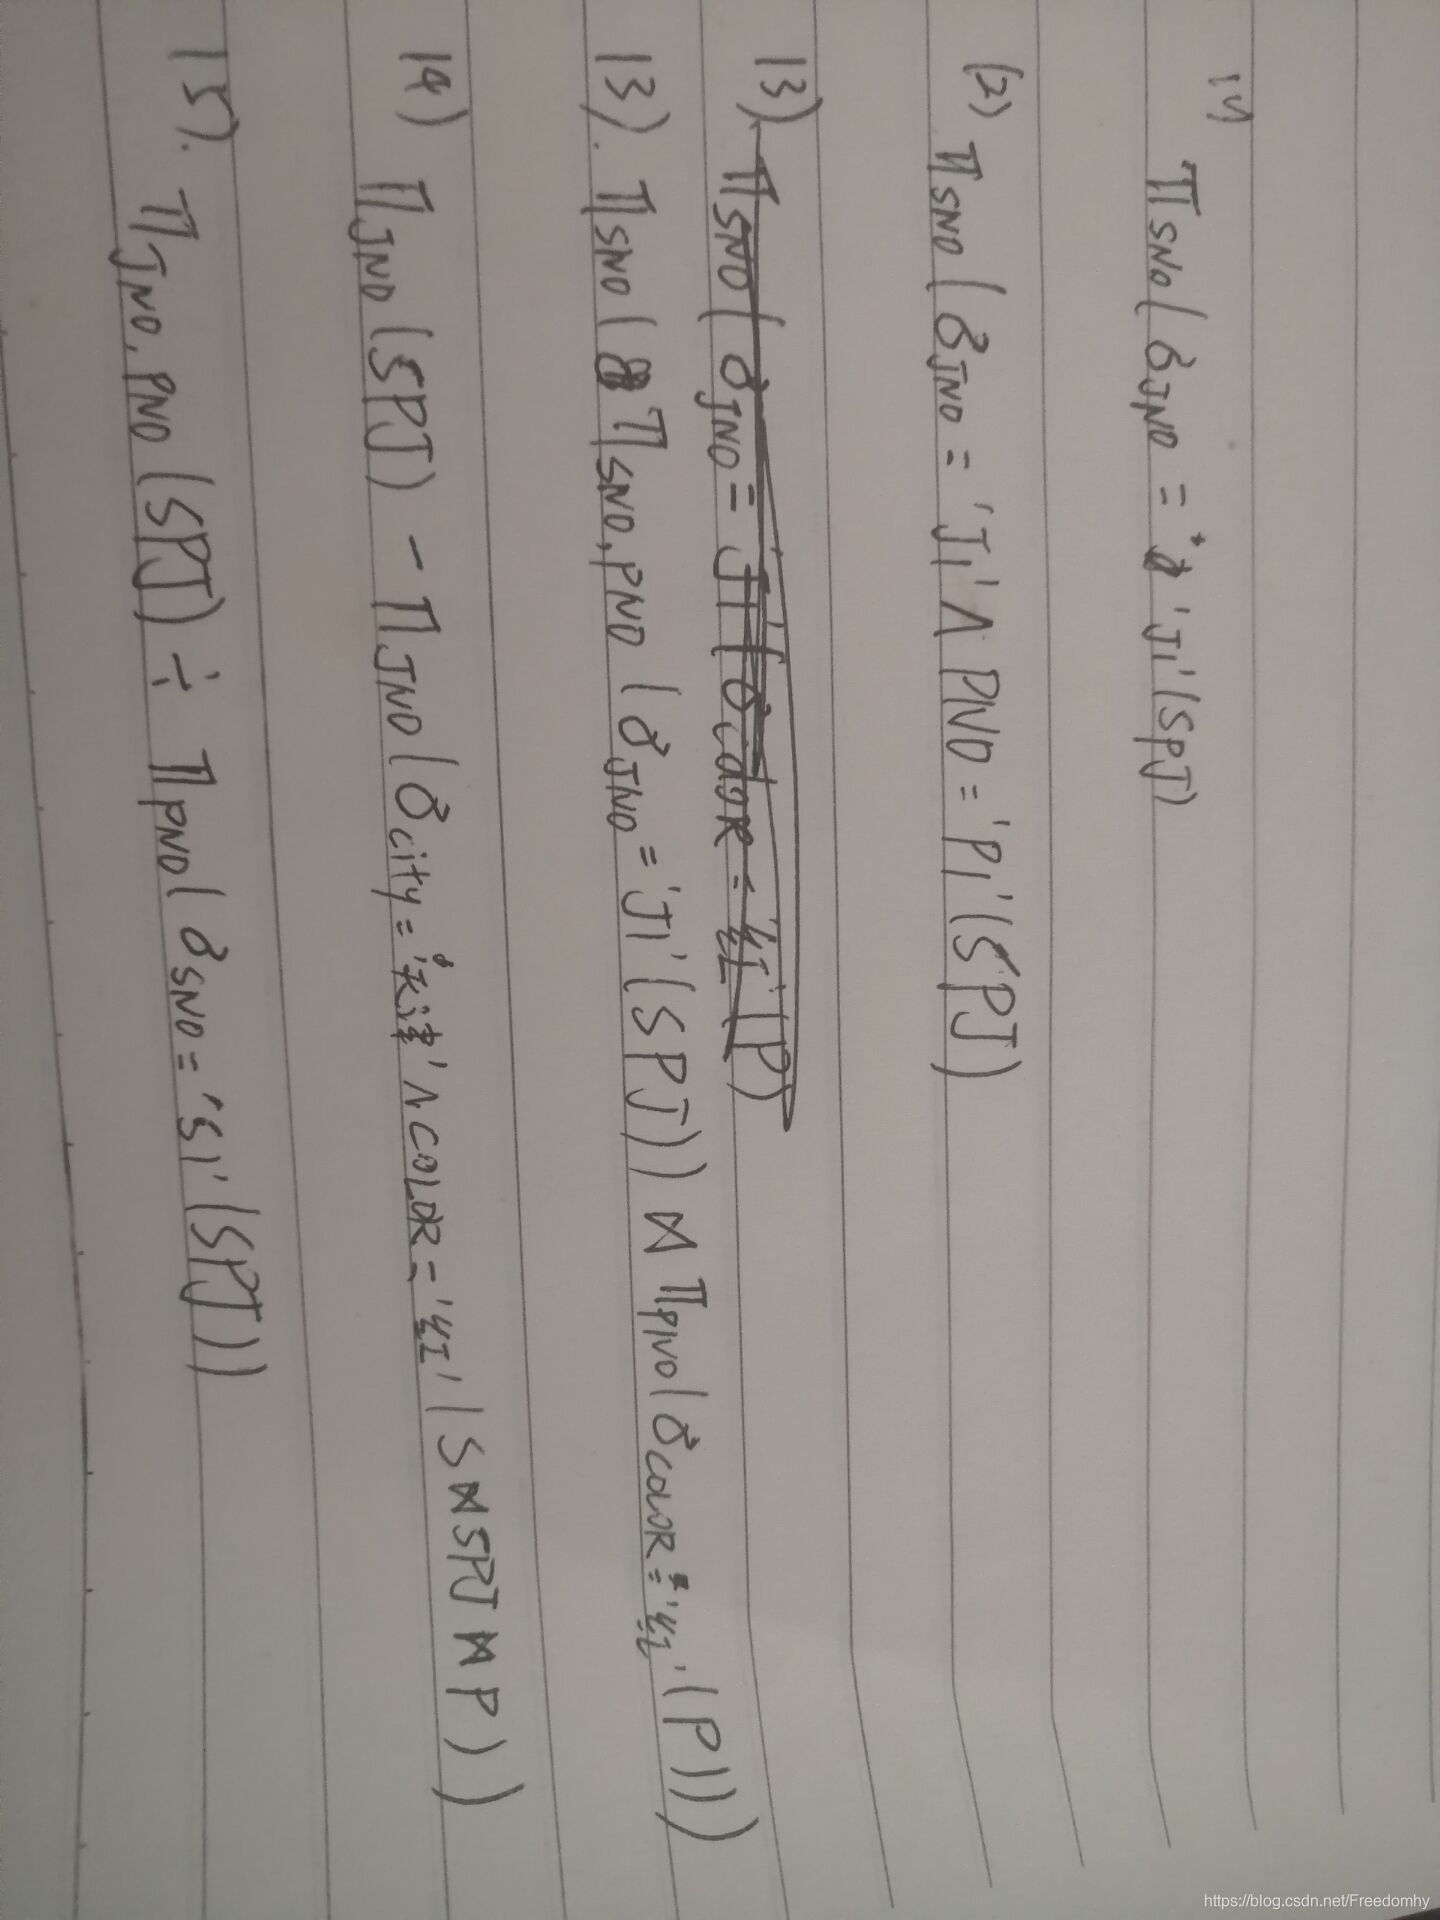 (1) π SNO (σ JNO = 'J1' (SPJ)
(2) π SNO (σ JNO = 'J1' ∧ PNO = 'P1' (SPJ)
(3) π SNO (σ JNO = J1 (σ COLOR = '红' (P)
(3). π SNO (π SNO, PNO (σ JNO = 'J1' (SPJ)) ⋈ π PNO (σ COLOR = '红' (P)))
(4) π JNO (SPJ) - π JNO (σ city = '天津' ∧ COLOR = '红' (S ⋈ SPJ ⋈ P))
(5). π JNO, PNO (SPJ) ÷ π PNO (σ SNO = 'S1' (SPJ))
https://blog.csdn.net/Freedomhy